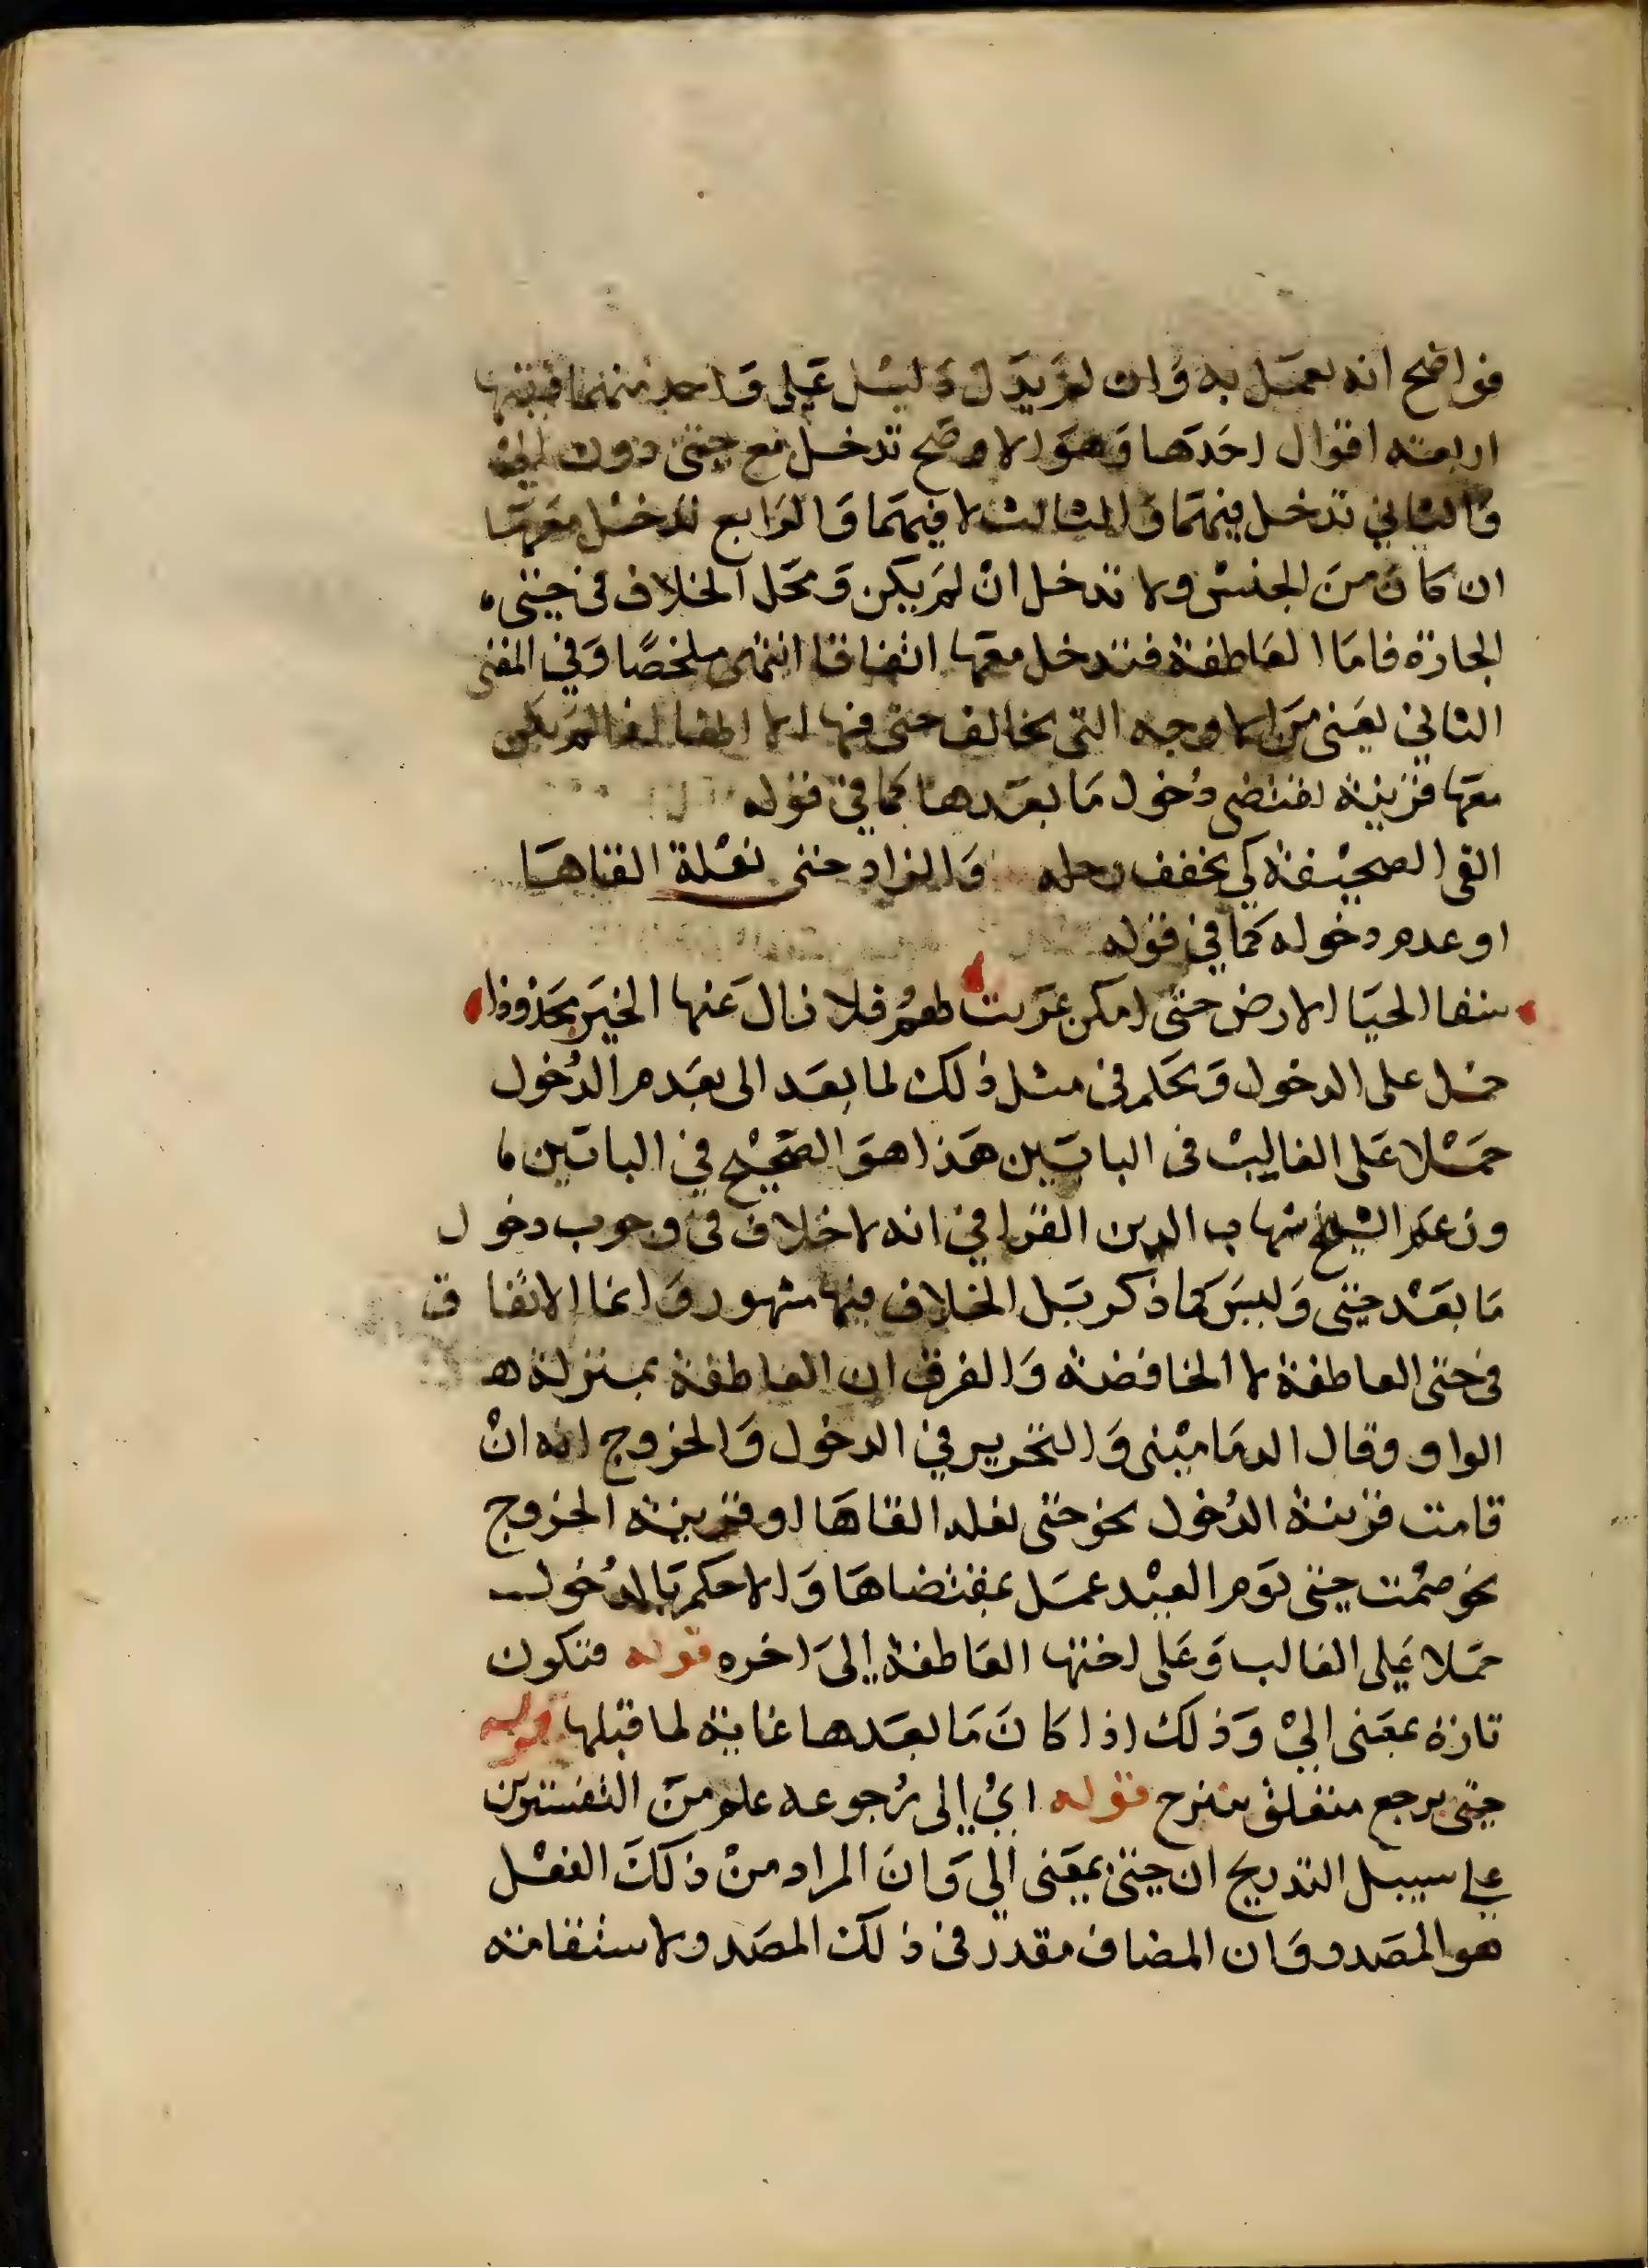 فواضح انه يعمل به وان لم يدل دليل على واحد منهما ففيها
اربعة اقوال احدها وهو الاوضح تدخل مع حتى دون الى
والثاني تدخل فيهما والثالث لا فيهما والرابع تدخل معهما
ان كان من الجنس ولا تدخل ان لم يكن ومحل الخلاف في حتى
الجارة فاما العاطفة فتدخل معها اتفاقا انتهى ملخصا وفي المغني
الثاني يعني من الاوجه التي تخالف حتى فيها الا اطفا لغا لم يكن
معها قرينة تقتضي دخول ما بعدها كما في قوله
القى الصحيفة كي يخفف رحله والزاد حتى نعلة القاها
او عدم دخوله كما في قوله
سقا الحيا الارض حتى امكن عزيت لهم فلا زال عنها الخير محذوذا
حمل على الدخول وبحكم في مثل ذلك لما بعد الى بعدم الدخول
حملا على الغالب في البابين هذا هو الصحيح في البابين
وزعم الشيخ شهاب الدين القرافي انه لا خلاف في وجوب دخول
ما بعد حتى وليس كما ذكر بل الخلاف فيها مشهور وانما الاتفاق
في حتى العاطفة لا الخافضة والفرق ان العاطفة بمنزلة
الواو وقال الدماميني والتحرير في الدخول والخروج انه ان
قامت قرينة الدخول نحو حتى نعله القاها او قرينة الخروج
نحو صمت حتى يوم العيد عمل بمقتضاها والا حكم بالدخول
حملا على الغالب وعلى اختها العاطفة الى اخره قوله فتكون
تارة بمعنى الى وذلك اذا كان ما بعدها غاية لما قبلها قوله
حتى يرجع متعلق بنبرح قوله اي الى رجوعه علم من التفسيرين
على سبيل التدريج ان حتى بمعنى الى وان المراد من ذلك الفعل
هو المصدر وان المضاف مقدر في ذلك المصدر ولاستقامته